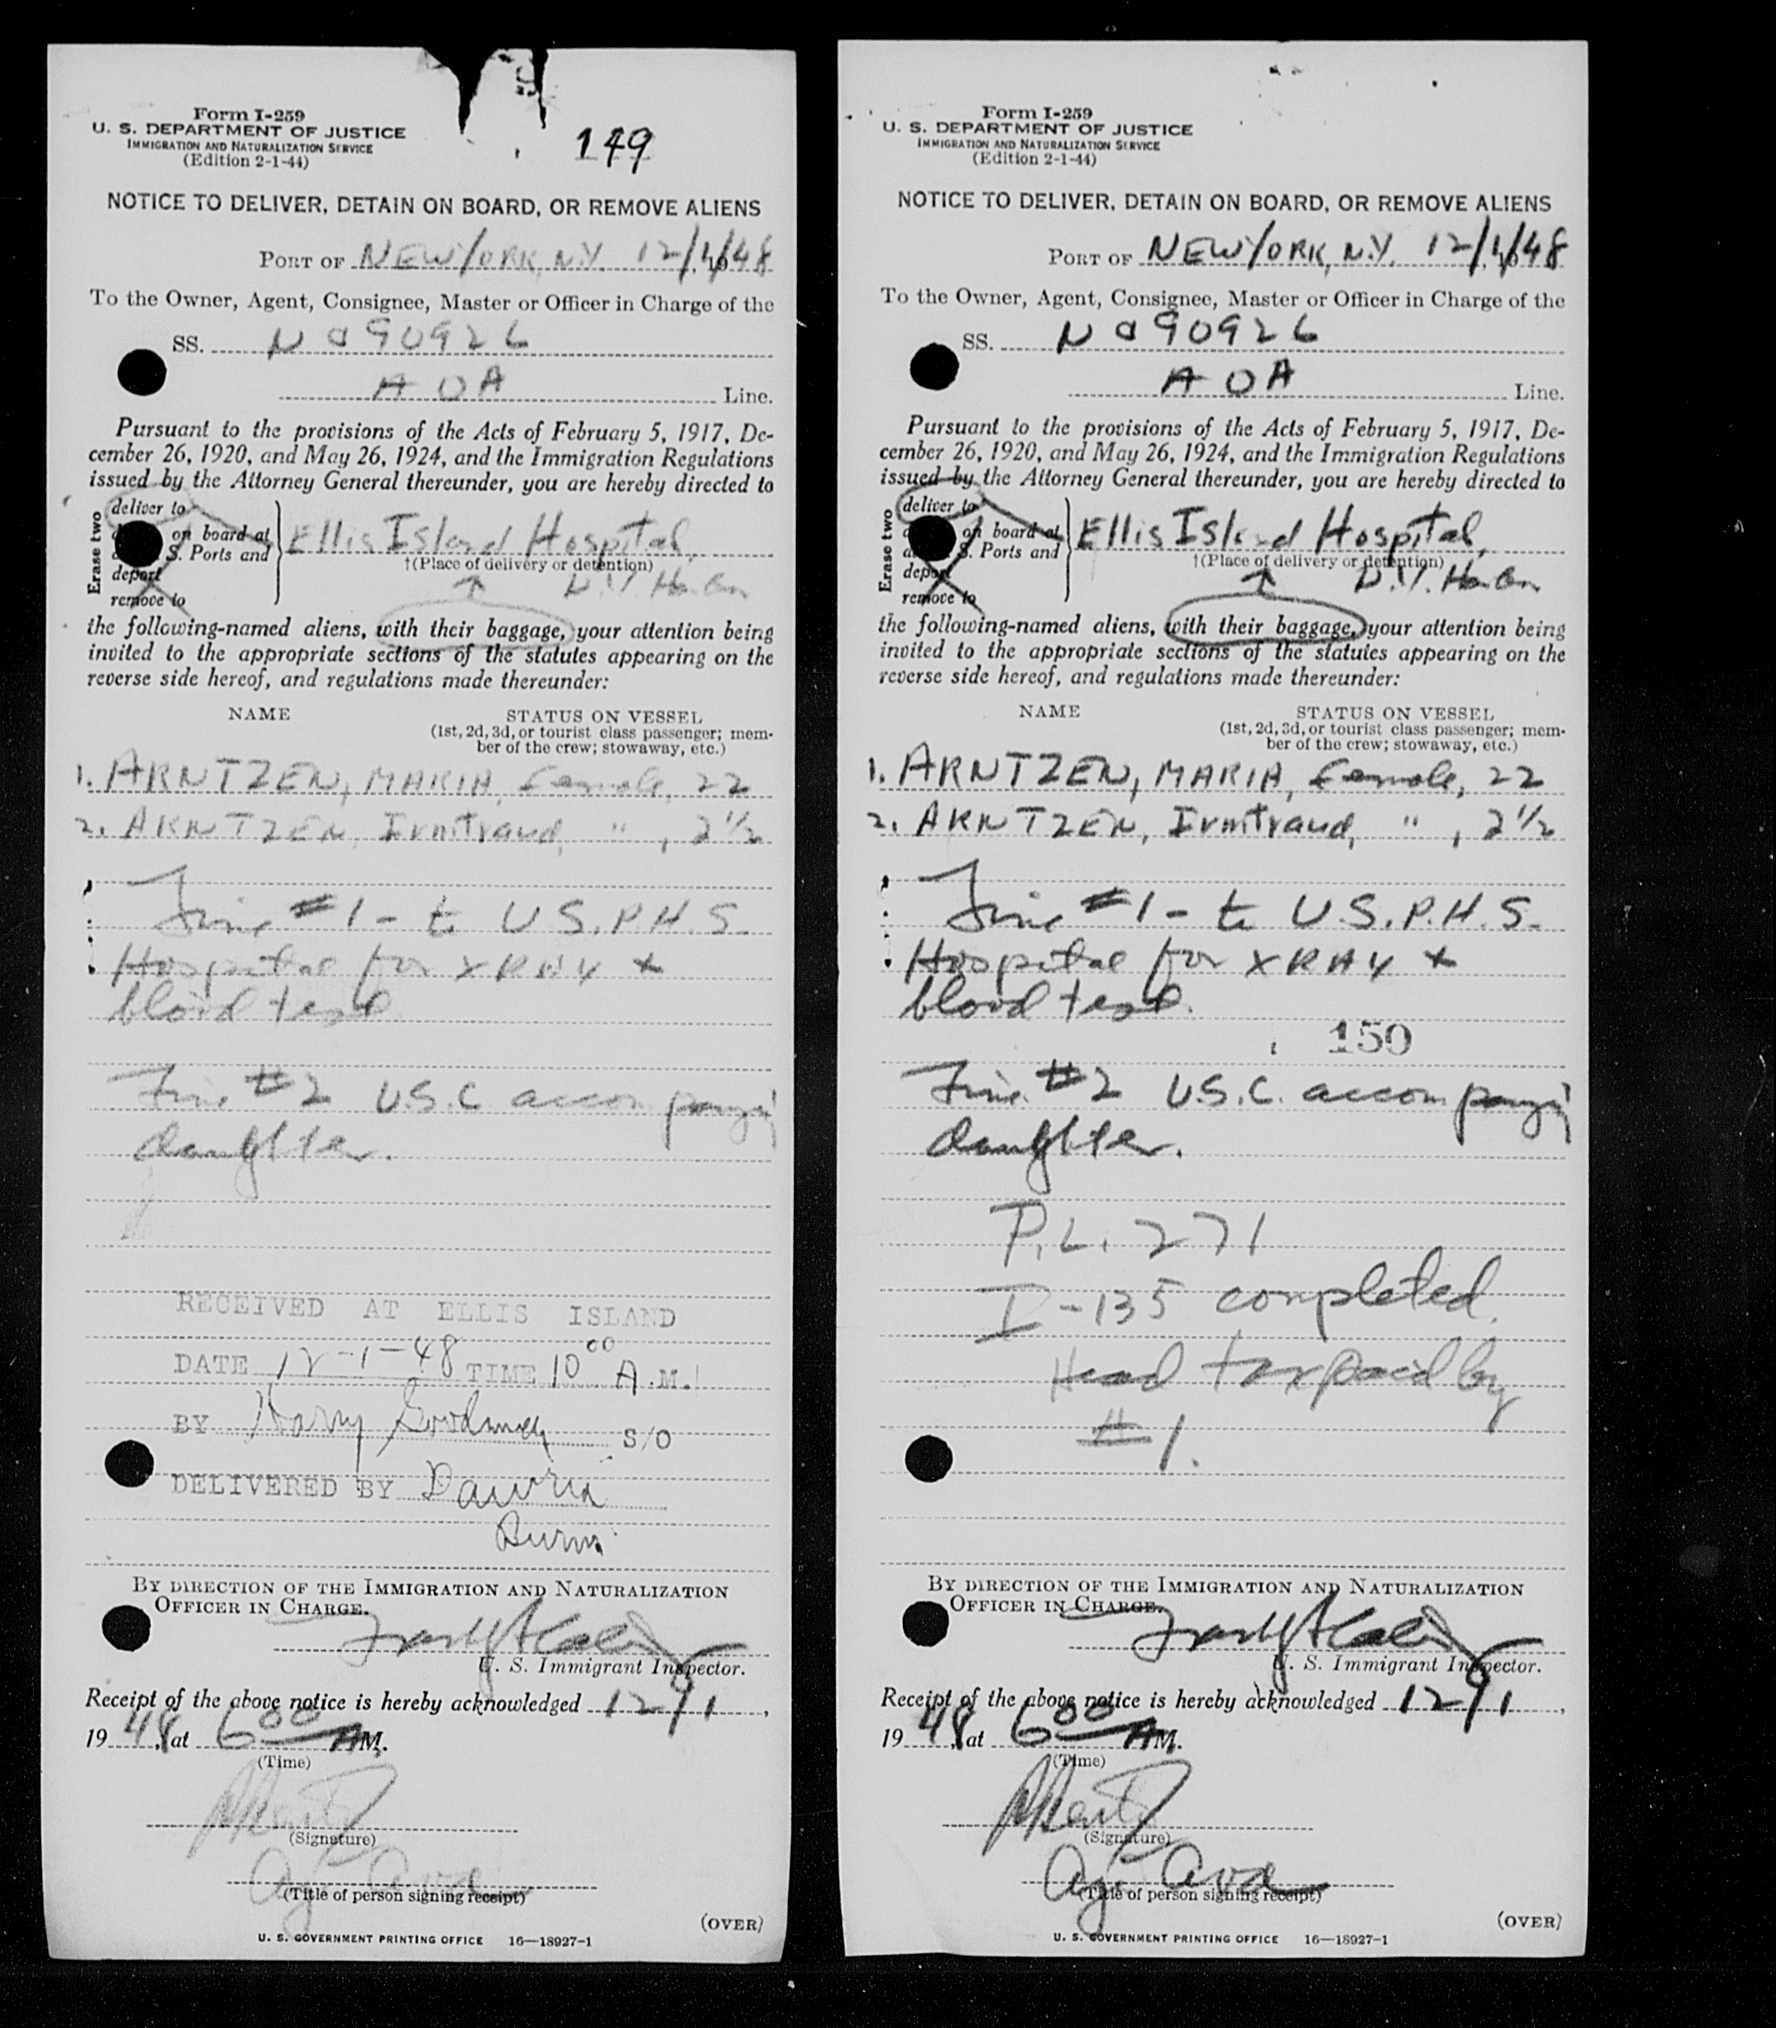 Form I-259
U. S. DEPARTMENT OF JUSTICE
IMMIGRATION AND NATURALIZATION SERVICE
(Edition 2-1-44)
149
NOTICE TO DELIVER, DETAIN ON BOARD, OR REMOVE ALIENS
PORT OF NEW YORK, N.Y. 12/1/48
To the Owner, Agent, Consignee, Master or Officer in Charge of the
SS. N 90926
AOA Line.
Pursuant to the provisions of the Acts of February 5, 1917, De-
cember 26, 1920, and May 26, 1924, and the Immigration Regulations
issued by the Attorney General thereunder, you are hereby directed to
Erase two
deliver to
on board at
S. Ports and
deport
remove to
Ellis Island Hospital,
†(Place of delivery or detention)
N.Y. Har
the following-named aliens, with their baggage, your attention being
invited to the appropriate sections of the statutes appearing on the
reverse side hereof, and regulations made thereunder:
NAME STATUS ON VESSEL
(1st, 2d, 3d, or tourist class passenger; mem-
ber of the crew; stowaway, etc.)
1. ARNTZEN, MARIA, female, 22
2. ARNTZEN, Irmtraud, " , 2 1/2
Line #1 - to U.S.P.H.S.
Hospital for XRAY +
blood test
Line #2 U.S.C. accompanying
daughter.
RECEIVED AT ELLIS ISLAND
DATE 12-1-48 TIME 10 00 A.M.
BY Harry S/O
DELIVERED BY
BY DIRECTION OF THE IMMIGRATION AND NATURALIZATION
OFFICER IN CHARGE.
U. S. Immigrant Inspector.
Receipt of the above notice is hereby acknowledged 12/1,
19 48, at 6 00 A M.
(Time)
(Signature)
Agt AOA
(Title of person signing receipt)
(OVER)
U. S. GOVERNMENT PRINTING OFFICE 16—18927-1
Form I-259
U. S. DEPARTMENT OF JUSTICE
IMMIGRATION AND NATURALIZATION SERVICE
(Edition 2-1-44)
NOTICE TO DELIVER, DETAIN ON BOARD, OR REMOVE ALIENS
PORT OF NEW YORK, N.Y. 12/1/48
To the Owner, Agent, Consignee, Master or Officer in Charge of the
SS. N 90926
AOA Line.
Pursuant to the provisions of the Acts of February 5, 1917, De-
cember 26, 1920, and May 26, 1924, and the Immigration Regulations
issued by the Attorney General thereunder, you are hereby directed to
Erase two
deliver to
on board at
S. Ports and
deport
remove to
Ellis Island Hospital,
†(Place of delivery or detention)
N.Y. Har
the following-named aliens, with their baggage, your attention being
invited to the appropriate sections of the statutes appearing on the
reverse side hereof, and regulations made thereunder:
NAME STATUS ON VESSEL
(1st, 2d, 3d, or tourist class passenger; mem-
ber of the crew; stowaway, etc.)
1. ARNTZEN, MARIA, female, 22
2. ARNTZEN, Irmtraud, " , 2 1/2
Line #1 - to U.S.P.H.S.
Hospital for XRAY +
blood test.
150
Line #2 U.S.C. accompanying
daughter.
P.L. 271
I-135 completed.
Head tax paid by
#1.
BY DIRECTION OF THE IMMIGRATION AND NATURALIZATION
OFFICER IN CHARGE.
U. S. Immigrant Inspector.
Receipt of the above notice is hereby acknowledged 12/1,
19 48, at 6 00 A M.
(Time)
(Signature)
Agt AOA
(Title of person signing receipt)
(OVER)
U. S. GOVERNMENT PRINTING OFFICE 16—18927-1